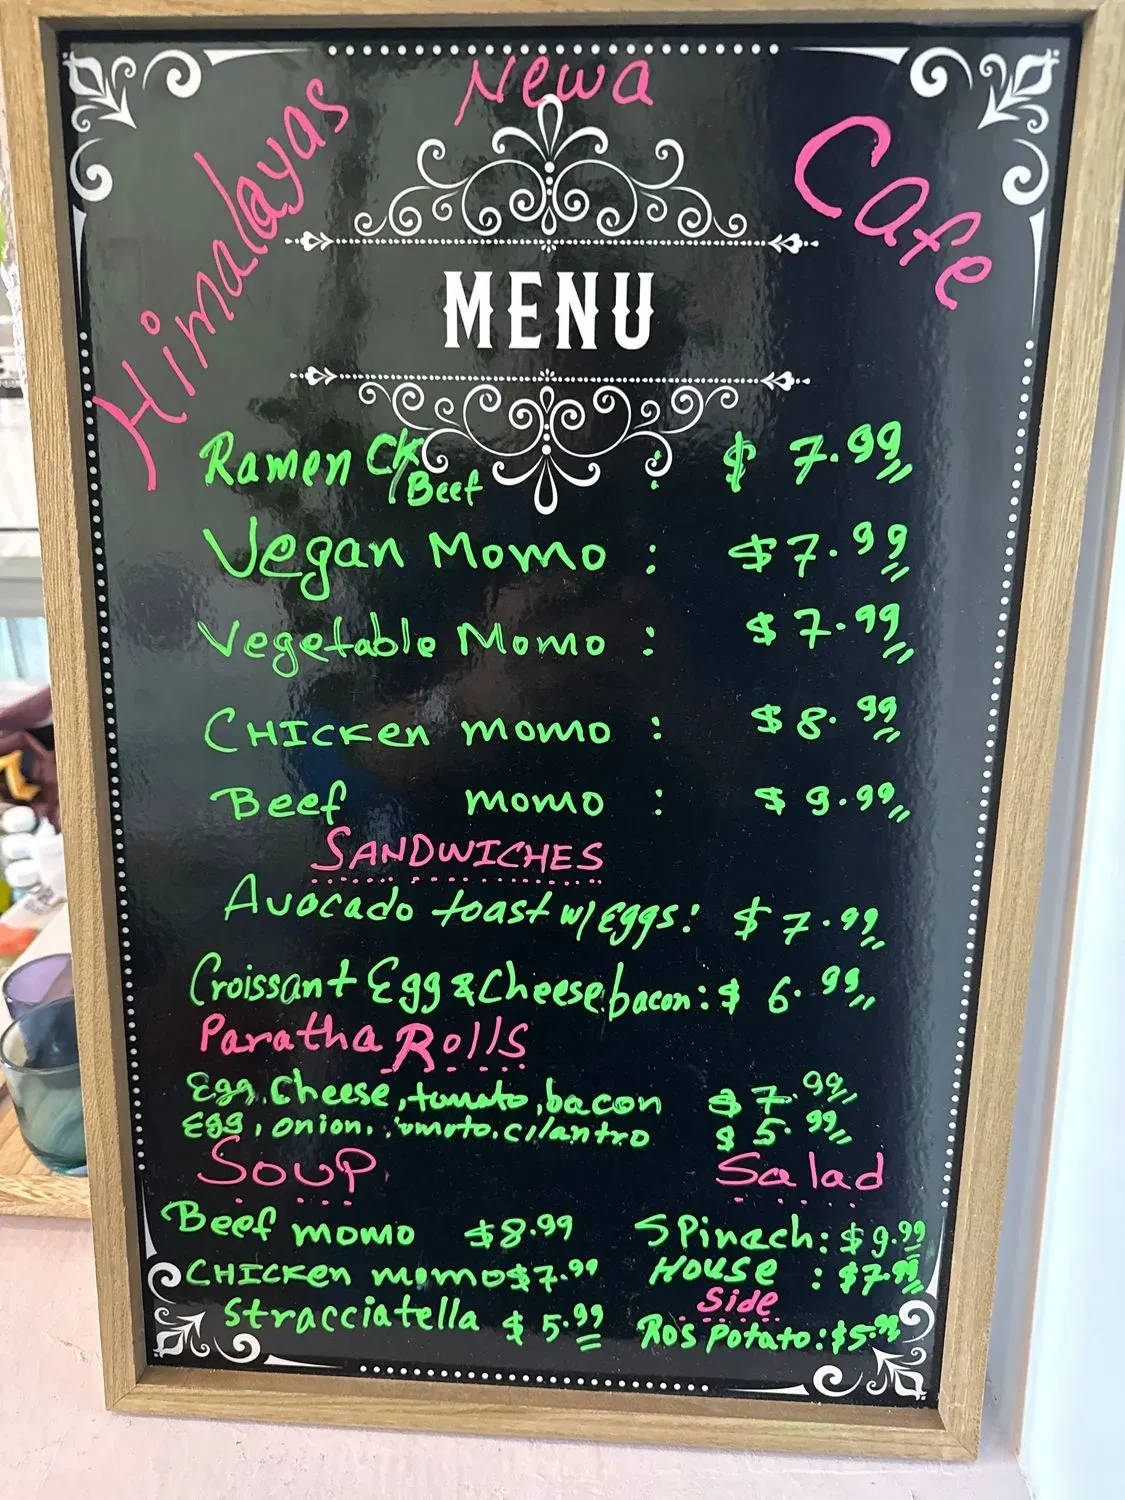 Himalayas Newa Cafe
MENU
Ramen CK/Beef : $7.99
Vegan Momo : $7.99
Vegetable Momo : $7.99
CHICKen momo : $8.99
Beef momo : $9.99
SANDWICHES
Avocado toast w/ Eggs: $7.99
Croissant Egg & Cheese, bacon: $6.99
Paratha Rolls
Egg, Cheese, tomato, bacon $7.99
Egg, onion, tomoto, cilantro $5.99
Soup
Beef momo $8.99
CHICKen momo $7.99
Stracciatella $5.99
Salad
Spinach: $9.99
House : $7.99
Side
Ros potato: $5.99